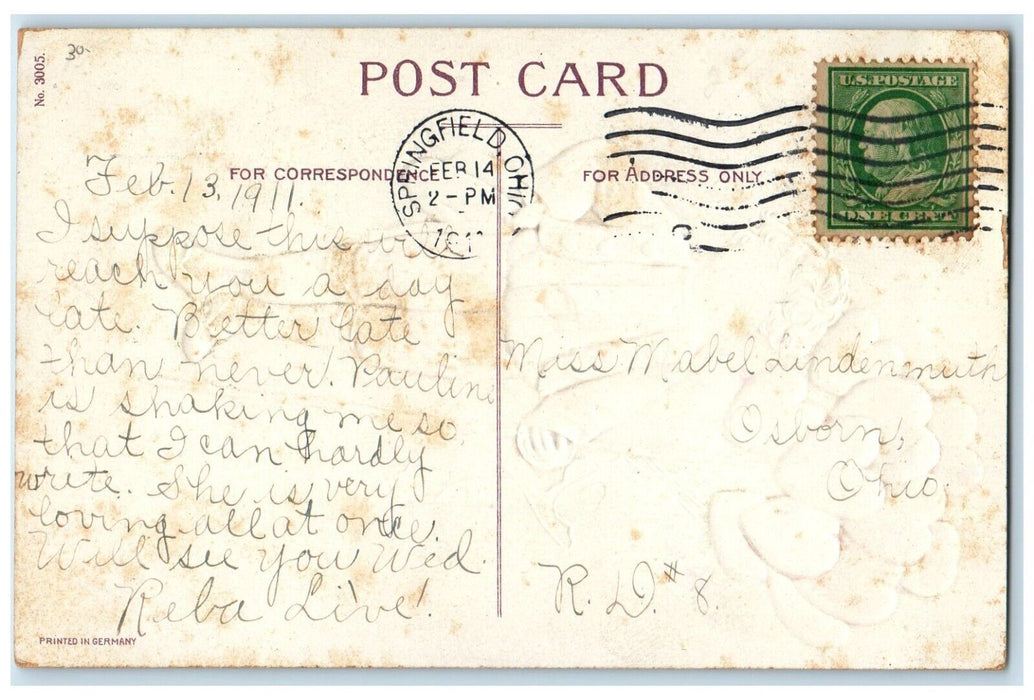 No. 3005.
30-
POST CARD
SPRINGFIELD, OHIO
FEB 14
2 - PM
U.S. POSTAGE
ONE CENT
FOR CORRESPONDENCE
FOR ADDRESS ONLY
Feb. 13, 1911.
I suppose this will
reach you a day
late. Better late
than never. Pauline
is shaking me so
that I can hardly
write. She is very
loving all at once.
Will see you Wed.
Reba
Miss Mabel Lindenmuth
Osborn,
Ohio.
R. D. # 8.
PRINTED IN GERMANY